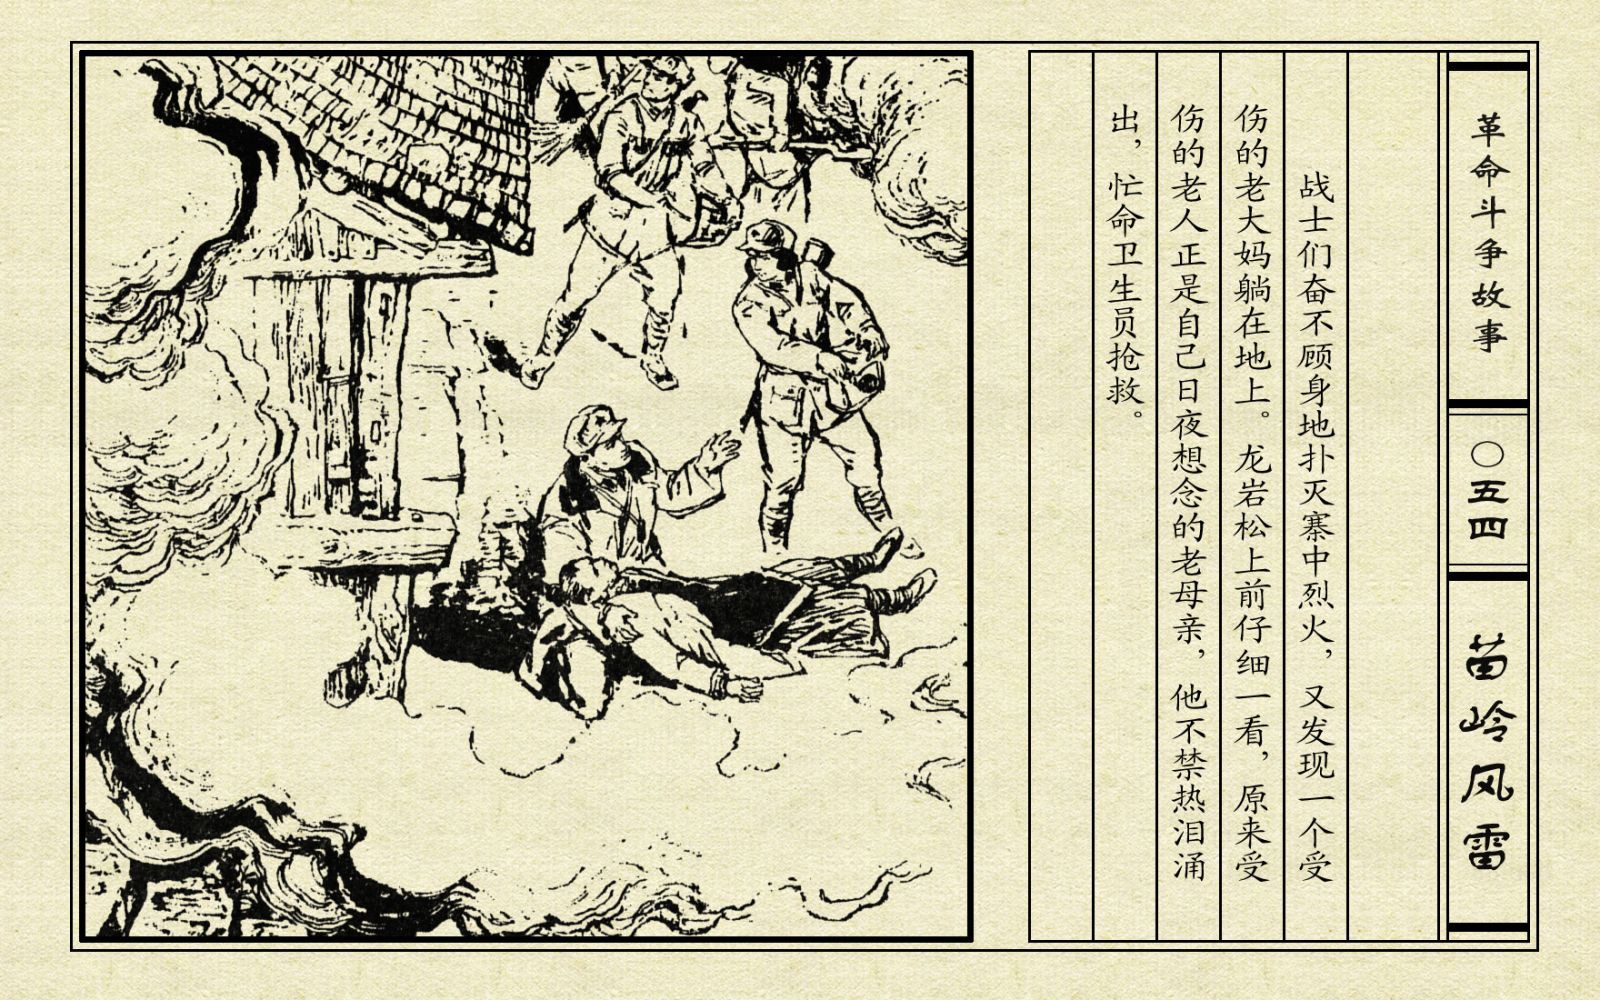 革命斗争故事
〇五四
苗岭风雷
战士们奋不顾身地扑灭寨中烈火，又发现一个受
伤的老大妈躺在地上。龙岩松上前仔细一看，原来受
伤的老人正是自己日夜想念的老母亲，他不禁热泪涌
出，忙命卫生员抢救。